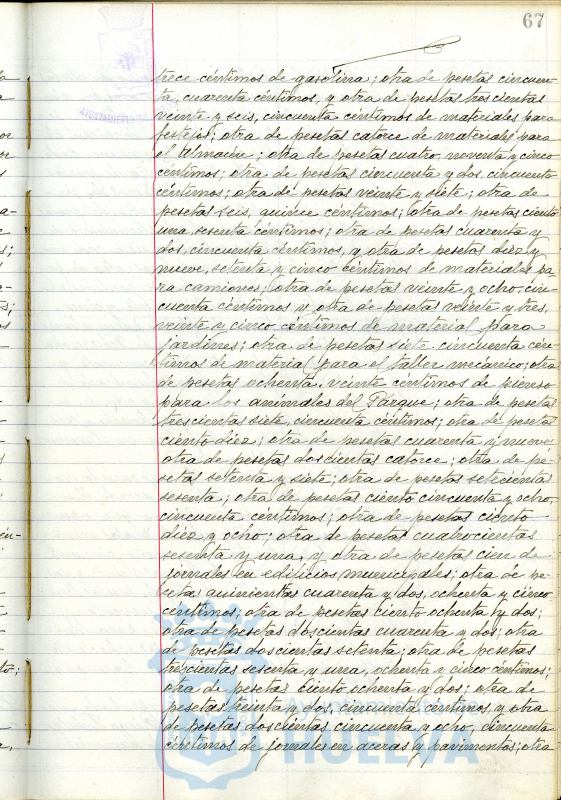 67
trece céntimos de gasolina; otra de pesetas cincuen-
ta, cuarenta céntimos, y otra de pesetas trescientas
veinte y seis, cincuenta céntimos de materiales para
festejos; otra de pesetas catorce de materiales para
el Almacén; otra de pesetas cuatro, noventa y cinco
céntimos; otra de pesetas cincuenta y dos, cincuenta
céntimos; otra de pesetas veinte y siete; otra de
pesetas seis, quince céntimos; otra de pesetas ciento
una, sesenta céntimos; otra de pesetas cuarenta y
dos, cincuenta céntimos, y otra de pesetas diez y
nueve, setenta y cinco céntimos de materiales pa-
ra camiones; otra de pesetas veinte y ocho, cin-
cuenta céntimos y otra de pesetas veinte y tres,
veinte y cinco céntimos de material para
jardines; otra de pesetas siete cincuenta cén-
timos de material para el taller mecánico; otra
de pesetas ochenta, veinte céntimos de pienso
para los animales del Parque; otra de pesetas
trescientas siete, cincuenta céntimos; otra de pesetas
ciento diez; otra de pesetas cuarenta y nueve
otra de pesetas doscientas catorce; otra de pe-
setas setenta y siete; otra de pesetas setecientas
sesenta; otra de pesetas ciento cincuenta y ocho
cincuenta céntimos; otra de pesetas ciento
diez y ocho; otra de pesetas cuatrocientas
sesenta y una, y otra de pesetas cien de
jornales en edificios municipales; otra de pe-
setas quinientas cuarenta y dos, ochenta y cinco
céntimos; otra de pesetas ciento ochenta y dos;
otra de pesetas doscientas cuarenta y dos; otra
de pesetas doscientas setenta; otra de pesetas
trescientas sesenta y una, ochenta y cinco céntimos;
otra de pesetas ciento ochenta y dos; otra de
pesetas treinta y dos, cincuenta céntimos, y otra
de pesetas doscientas cincuenta y ocho, cincuenta
céntimos de jornales en aceras y pavimentos; otra
HUELVA